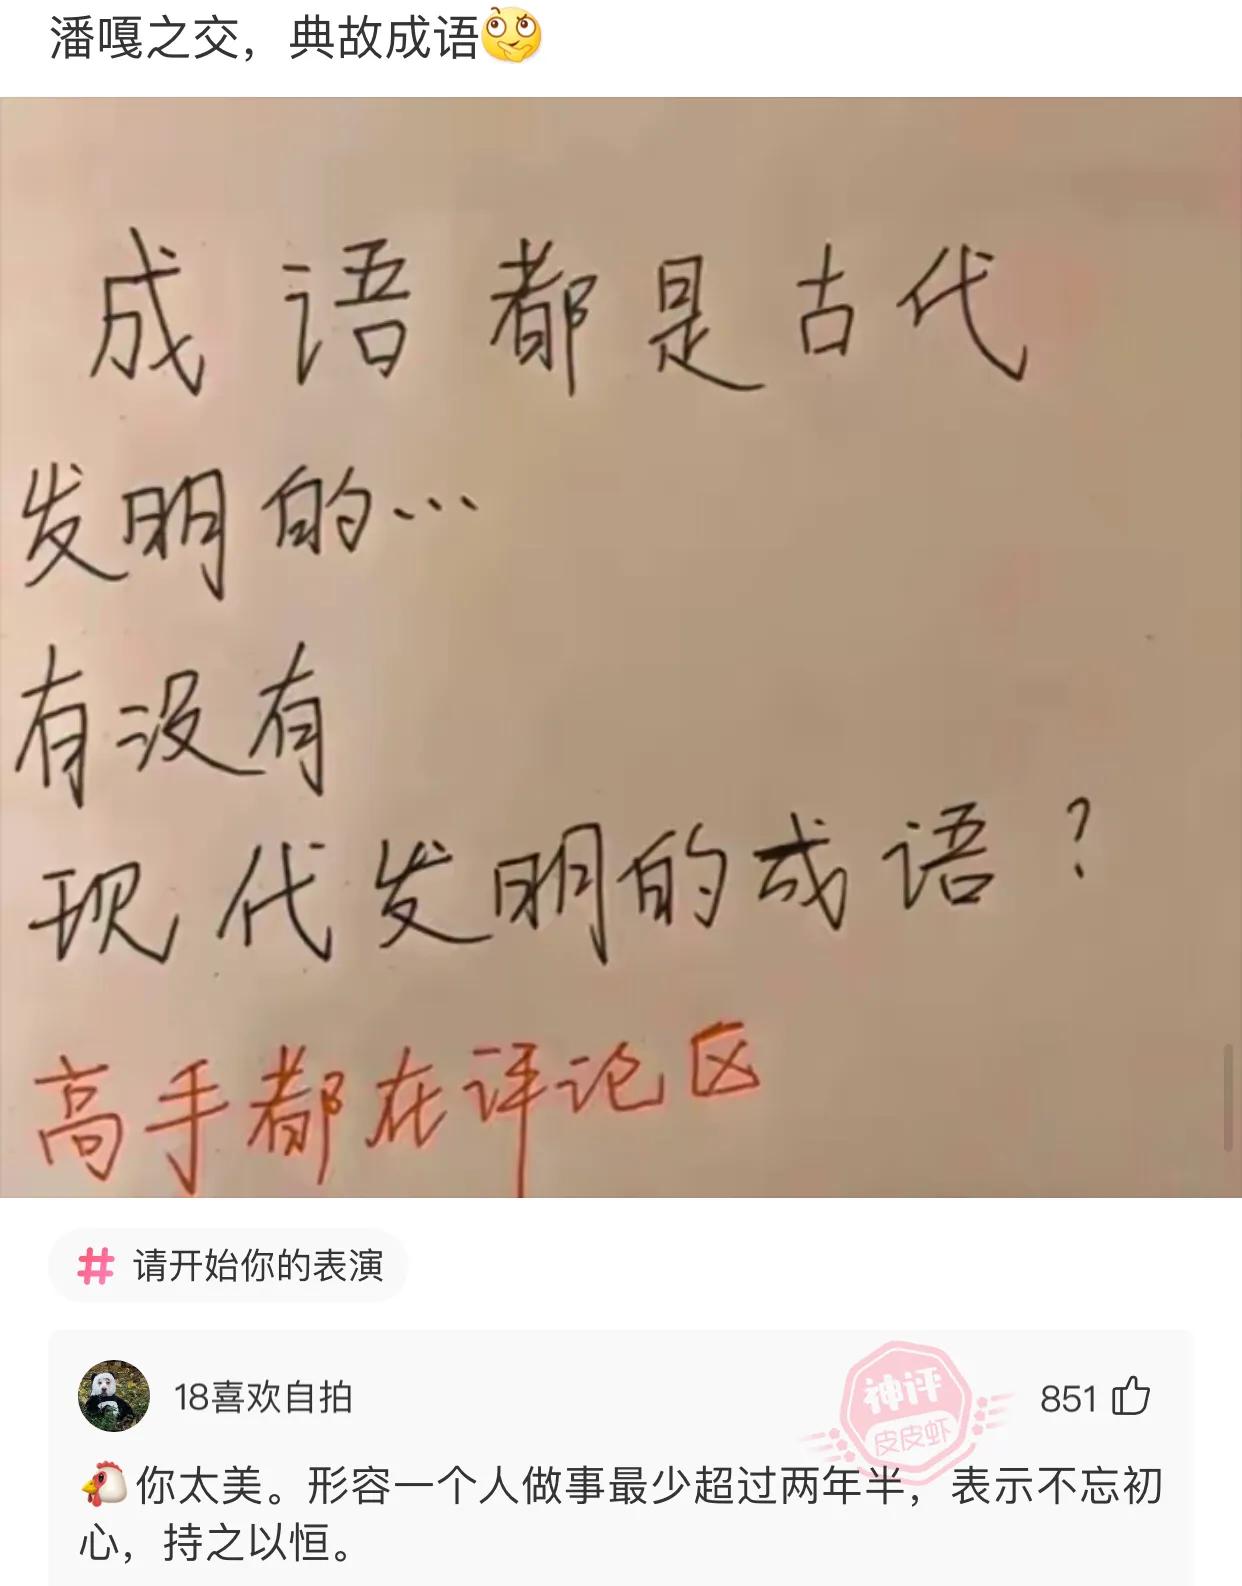 潘嘎之交，典故成语
成语都是古代
发明的…
有没有
现代发明的成语？
高手都在评论区
# 请开始你的表演
18喜欢自拍
神评
皮皮虾
851
🐔你太美。形容一个人做事最少超过两年半，表示不忘初
心，持之以恒。